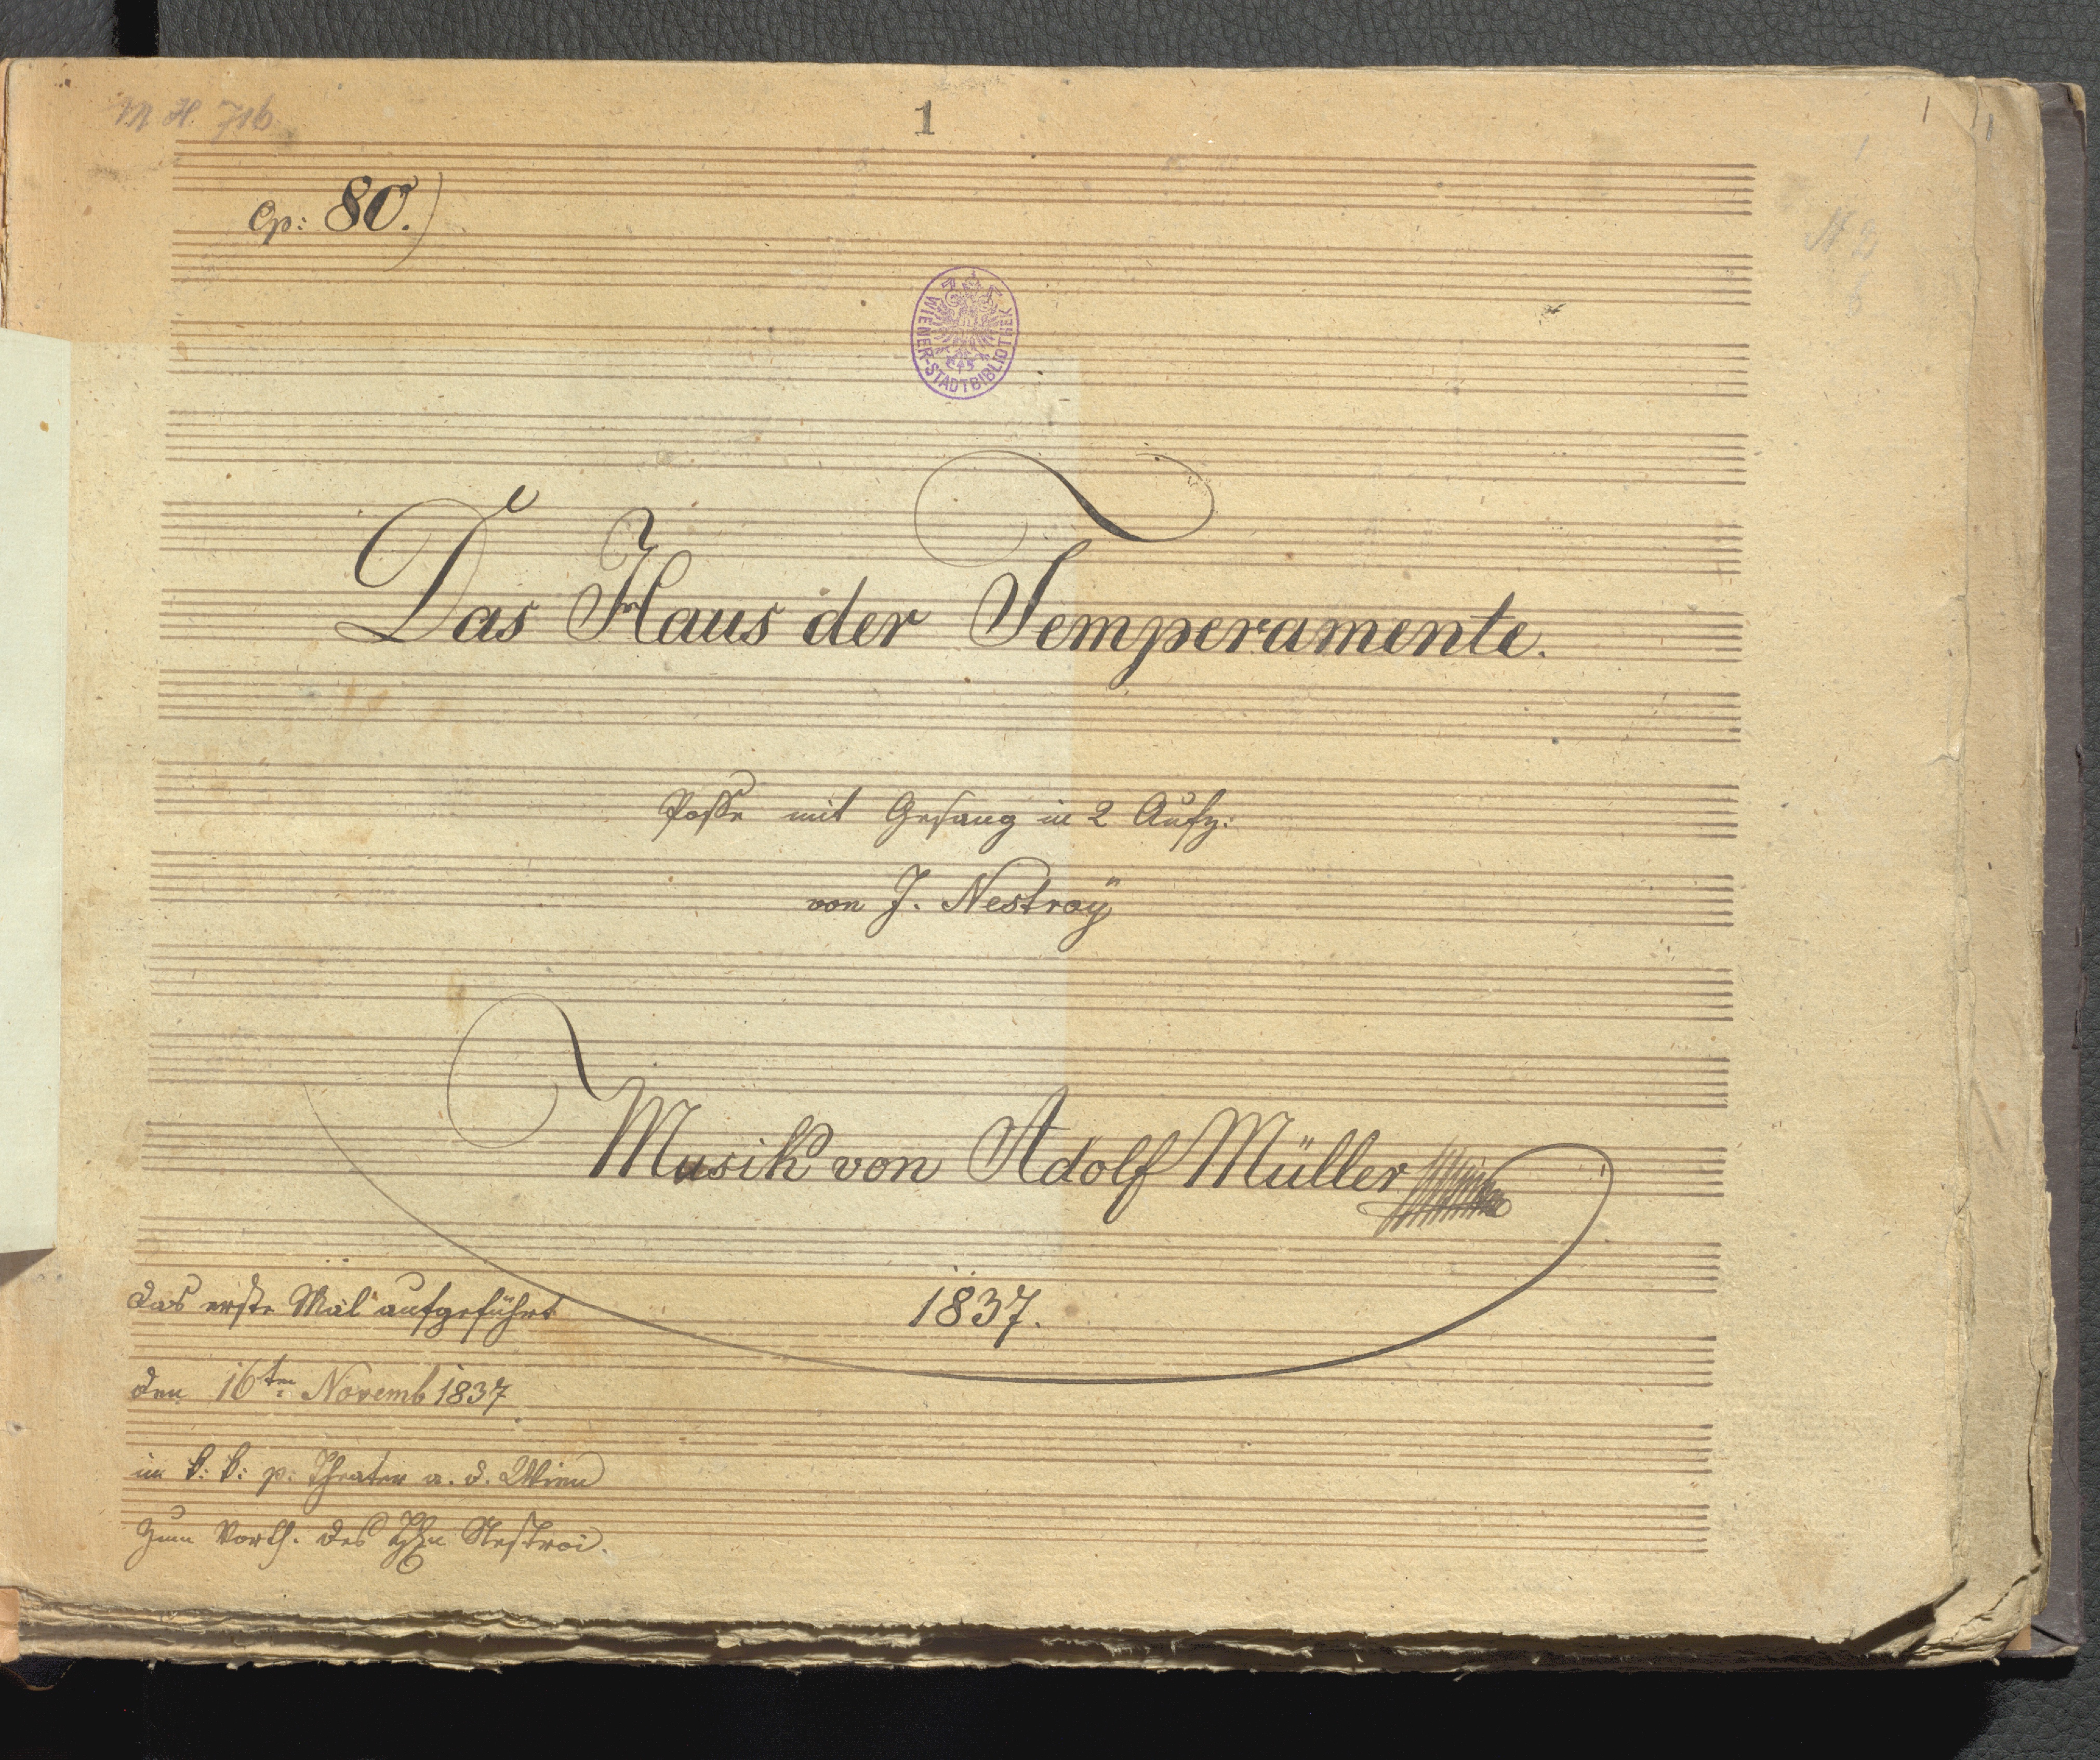 M H. 716
1
Op: 80.)
WIENER-STADTBIBLIOTHEK
Das Haus der Temperamente.
Posse mit Gesang in 2 Aufz:
von J. Nestroÿ
Musik von Adolf Müller
1837.
das erste Mal aufgeführt
den 16ten Novemb 1837
im k: k: p: Theater a. d. Wien
zum Vorth. des Hn Nestroi.